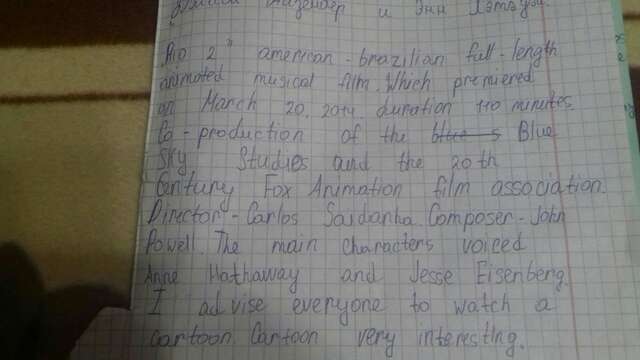 и Энн Хэтэуэй
Rio 2" american - brazilian full - length
animated musical film. Which premiered
on March 20, 2014. duration 110 minutes.
Co - production of the blue s Blue
Sky Studies and the 20th
Century Fox Animation film association.
Director - Carlos Saldanha. Composer - John
Powell. The main characters voiced
Anne Hathaway and Jesse Eisenberg.
I advise everyone to watch a
cartoon. Cartoon very interesting.